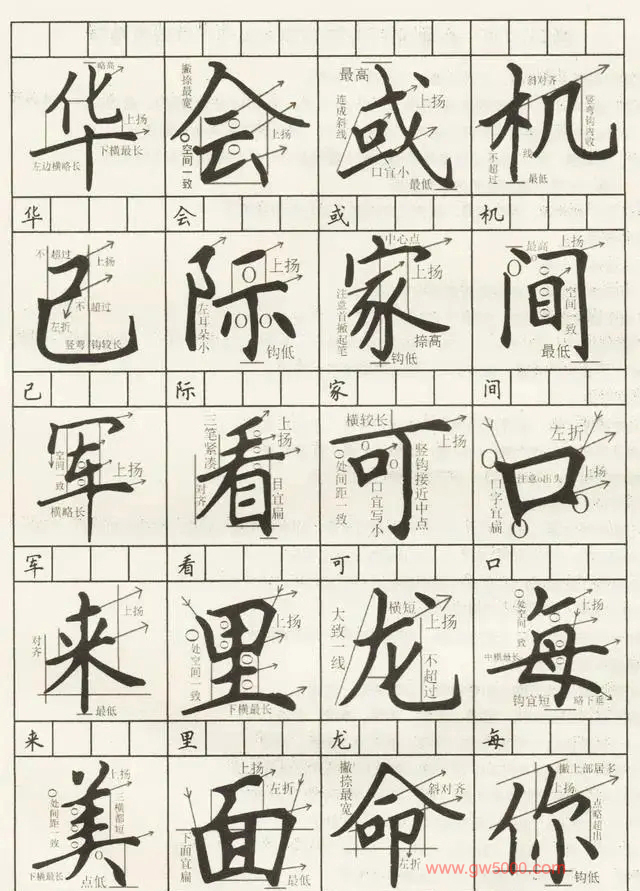 华 会 或 机
略高 上扬 下横最长 左边横略长
撇捺最宽 上扬 〇空间一致
最高 连成斜线 上扬 口宜小 最低
斜对齐 竖弯钩内收 不超过 一线 最低
华 会 或 机
己 际 家 间
不超过 上扬 不超过 左折 竖弯钩较长
上扬 左耳朵小 钩低
中心点 上扬 注意首撇起笔 捺高 钩低
最高 上扬 空间一致 最低
己 际 家 间
军 看 可 口
空间一致 上扬 横略长
三笔紧凑 上扬 对齐 目宜扁
横较长 上扬 〇处间距一致 口宜写小 竖钩接近中点
左折 注意o出头 上扬 口字宜扁
军 看 可 口
来 里 龙 每
上扬 对齐 最低
上扬 〇处空间一致 下横最长
大致一线 横短 上扬 不超过
〇处空间一致 上扬 中横最长 钩宜短 略下垂
来 里 龙 每
美 面 命 你
上扬 〇处间距一致 三横都短 下横最长 点低
上扬 左折 下面宜扁 最低
撇捺最宽 斜对齐 左折
撇上部居多 上扬 点略超出 钩低
www.gw5000.com